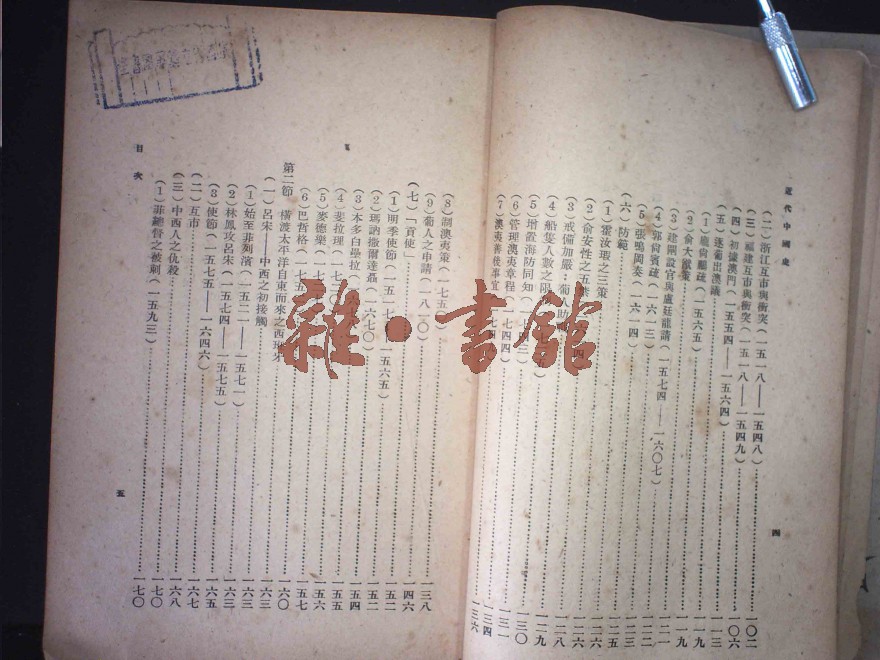 近代中國史
四
(二)浙江互市與衝突(一五一八——一五四八)……一〇二
(三)福建互市與衝突(一五一八——一五四九)……一〇六
(四)初據澳門(一五五四——一五六四)……一一三
(五)逐葡出澳議……一一九
(1)龐尚鵬疏
(2)俞大猷策(一五六五)
(3)建閘設官與盧廷龍請(一五七四——一六〇七)
(4)郭尚賓疏(一六一三)
(5)張鳴岡奏(一六一四)
(六)防範
(1)霍汝瑕之三策
(2)俞安性之五
(3)戒備加嚴
(4)船隻人數之限
(5)增設海防同知
(6)管理澳夷章程(一七四四)……一三一
(7)澳夷善後事宜……一三六
(8)制澳夷策(一七五一)……一三八
(9)葡人之申請(一八一〇)
(七)「貢使」……一四六
(1)明季使節(一五一七——一五六五)……一五二
(2)瑪訥撒爾達聶(一六七〇)……一五二
(3)本多白壘拉……一五四
(4)斐拉理……一五五
(5)麥德樂……一五六
(6)巴哲格……一五七
第二節 橫渡太平洋自東而來之西班牙……一六〇
(一)呂宋——中西之初接觸……一六三
(1)始至菲列濱(一五二一——一五七一)……一六三
(2)林鳳攻呂宋(一五七四——一五七五)……一六三
(3)使節(一五七五——一六四六)……一六五
(二)互市……一六七
(三)中西人之仇殺……一六八
(1)菲總督之被刺(一五九三)……一七〇
目次
五
雜·書館